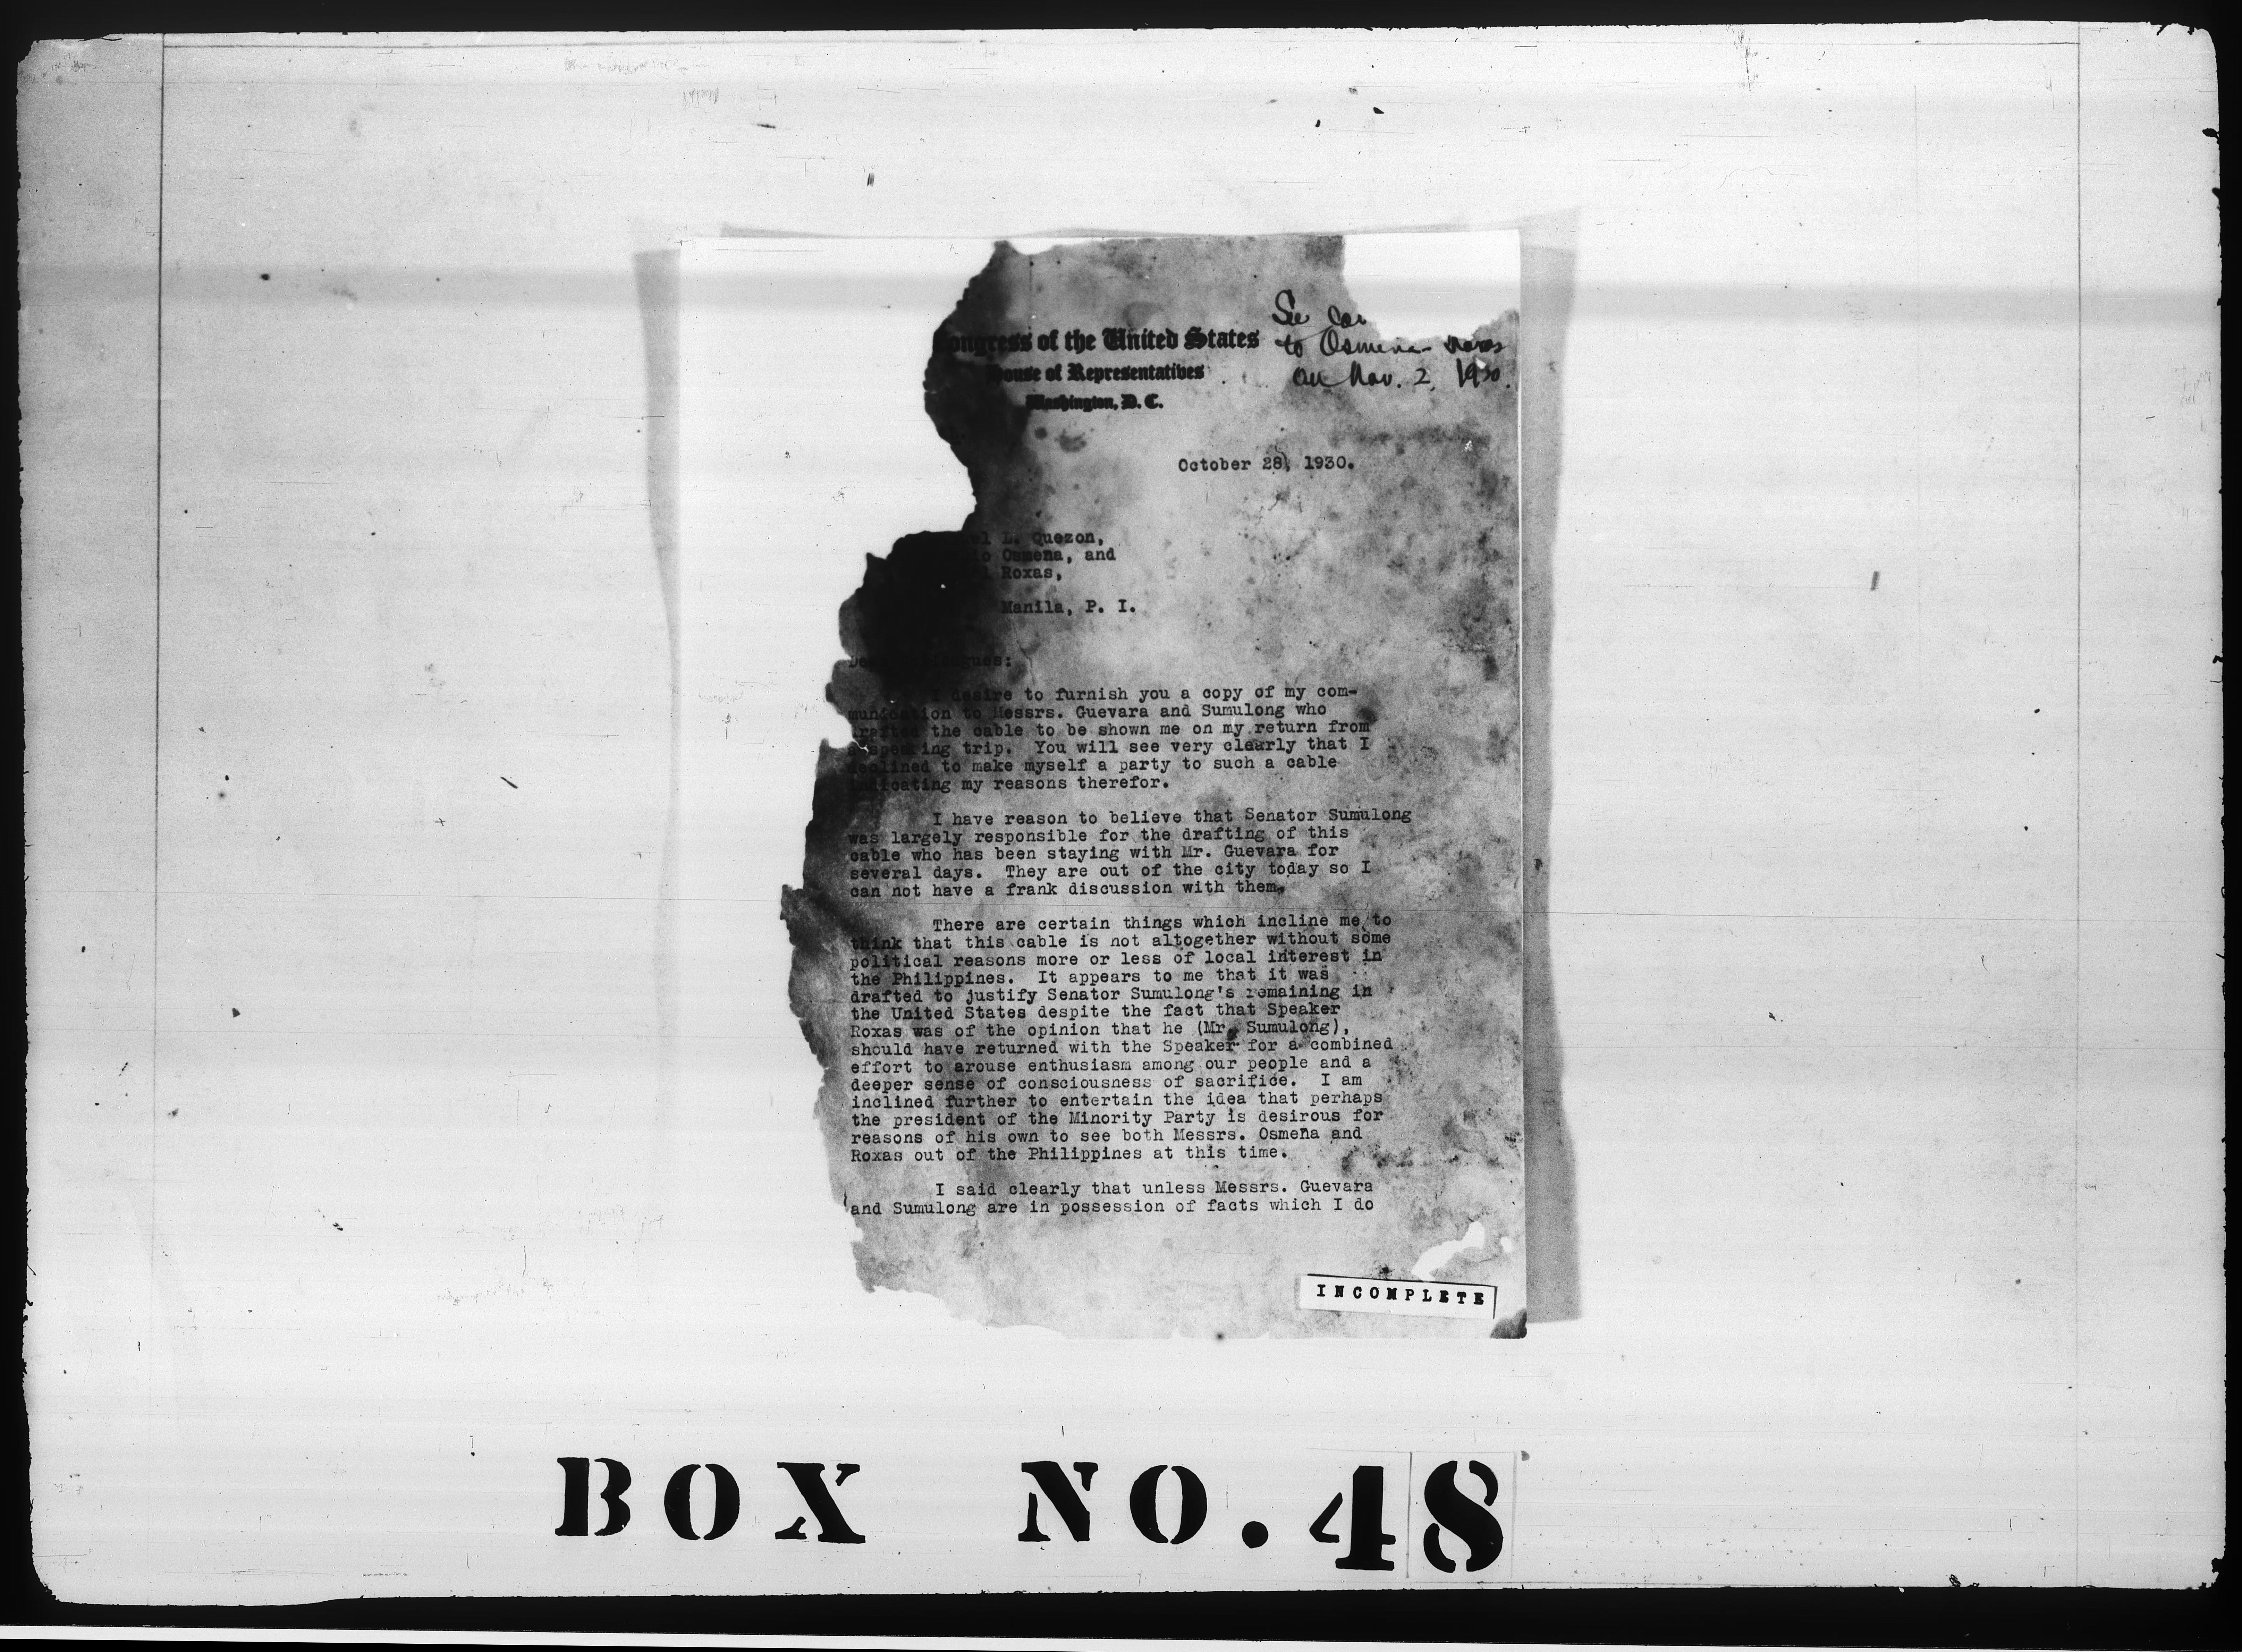 See
to Osmena
on Nov. 2, 1930.
Congress of the United States
House of Representatives
Washington, D. C.
October 28, 1930.
el L. Quezon,
io Osmena, and
l Roxas,
Manila, P. I.
Dear Colleagues:
I desire to furnish you a copy of my com-
munication to Messrs. Guevara and Sumulong who
drafted the cable to be shown me on my return from
a speaking trip. You will see very clearly that I
declined to make myself a party to such a cable
indicating my reasons therefor.
I have reason to believe that Senator Sumulong
was largely responsible for the drafting of this
cable who has been staying with Mr. Guevara for
several days. They are out of the city today so I
can not have a frank discussion with them.
There are certain things which incline me to
think that this cable is not altogether without some
political reasons more or less of local interest in
the Philippines. It appears to me that it was
drafted to justify Senator Sumulong's remaining in
the United States despite the fact that Speaker
Roxas was of the opinion that he (Mr. Sumulong),
should have returned with the Speaker for a combined
effort to arouse enthusiasm among our people and a
deeper sense of consciousness of sacrifice. I am
inclined further to entertain the idea that perhaps
the president of the Minority Party is desirous for
reasons of his own to see both Messrs. Osmeña and
Roxas out of the Philippines at this time.
I said clearly that unless Messrs. Guevara
and Sumulong are in possession of facts which I do
INCOMPLETE
BOX NO. 48